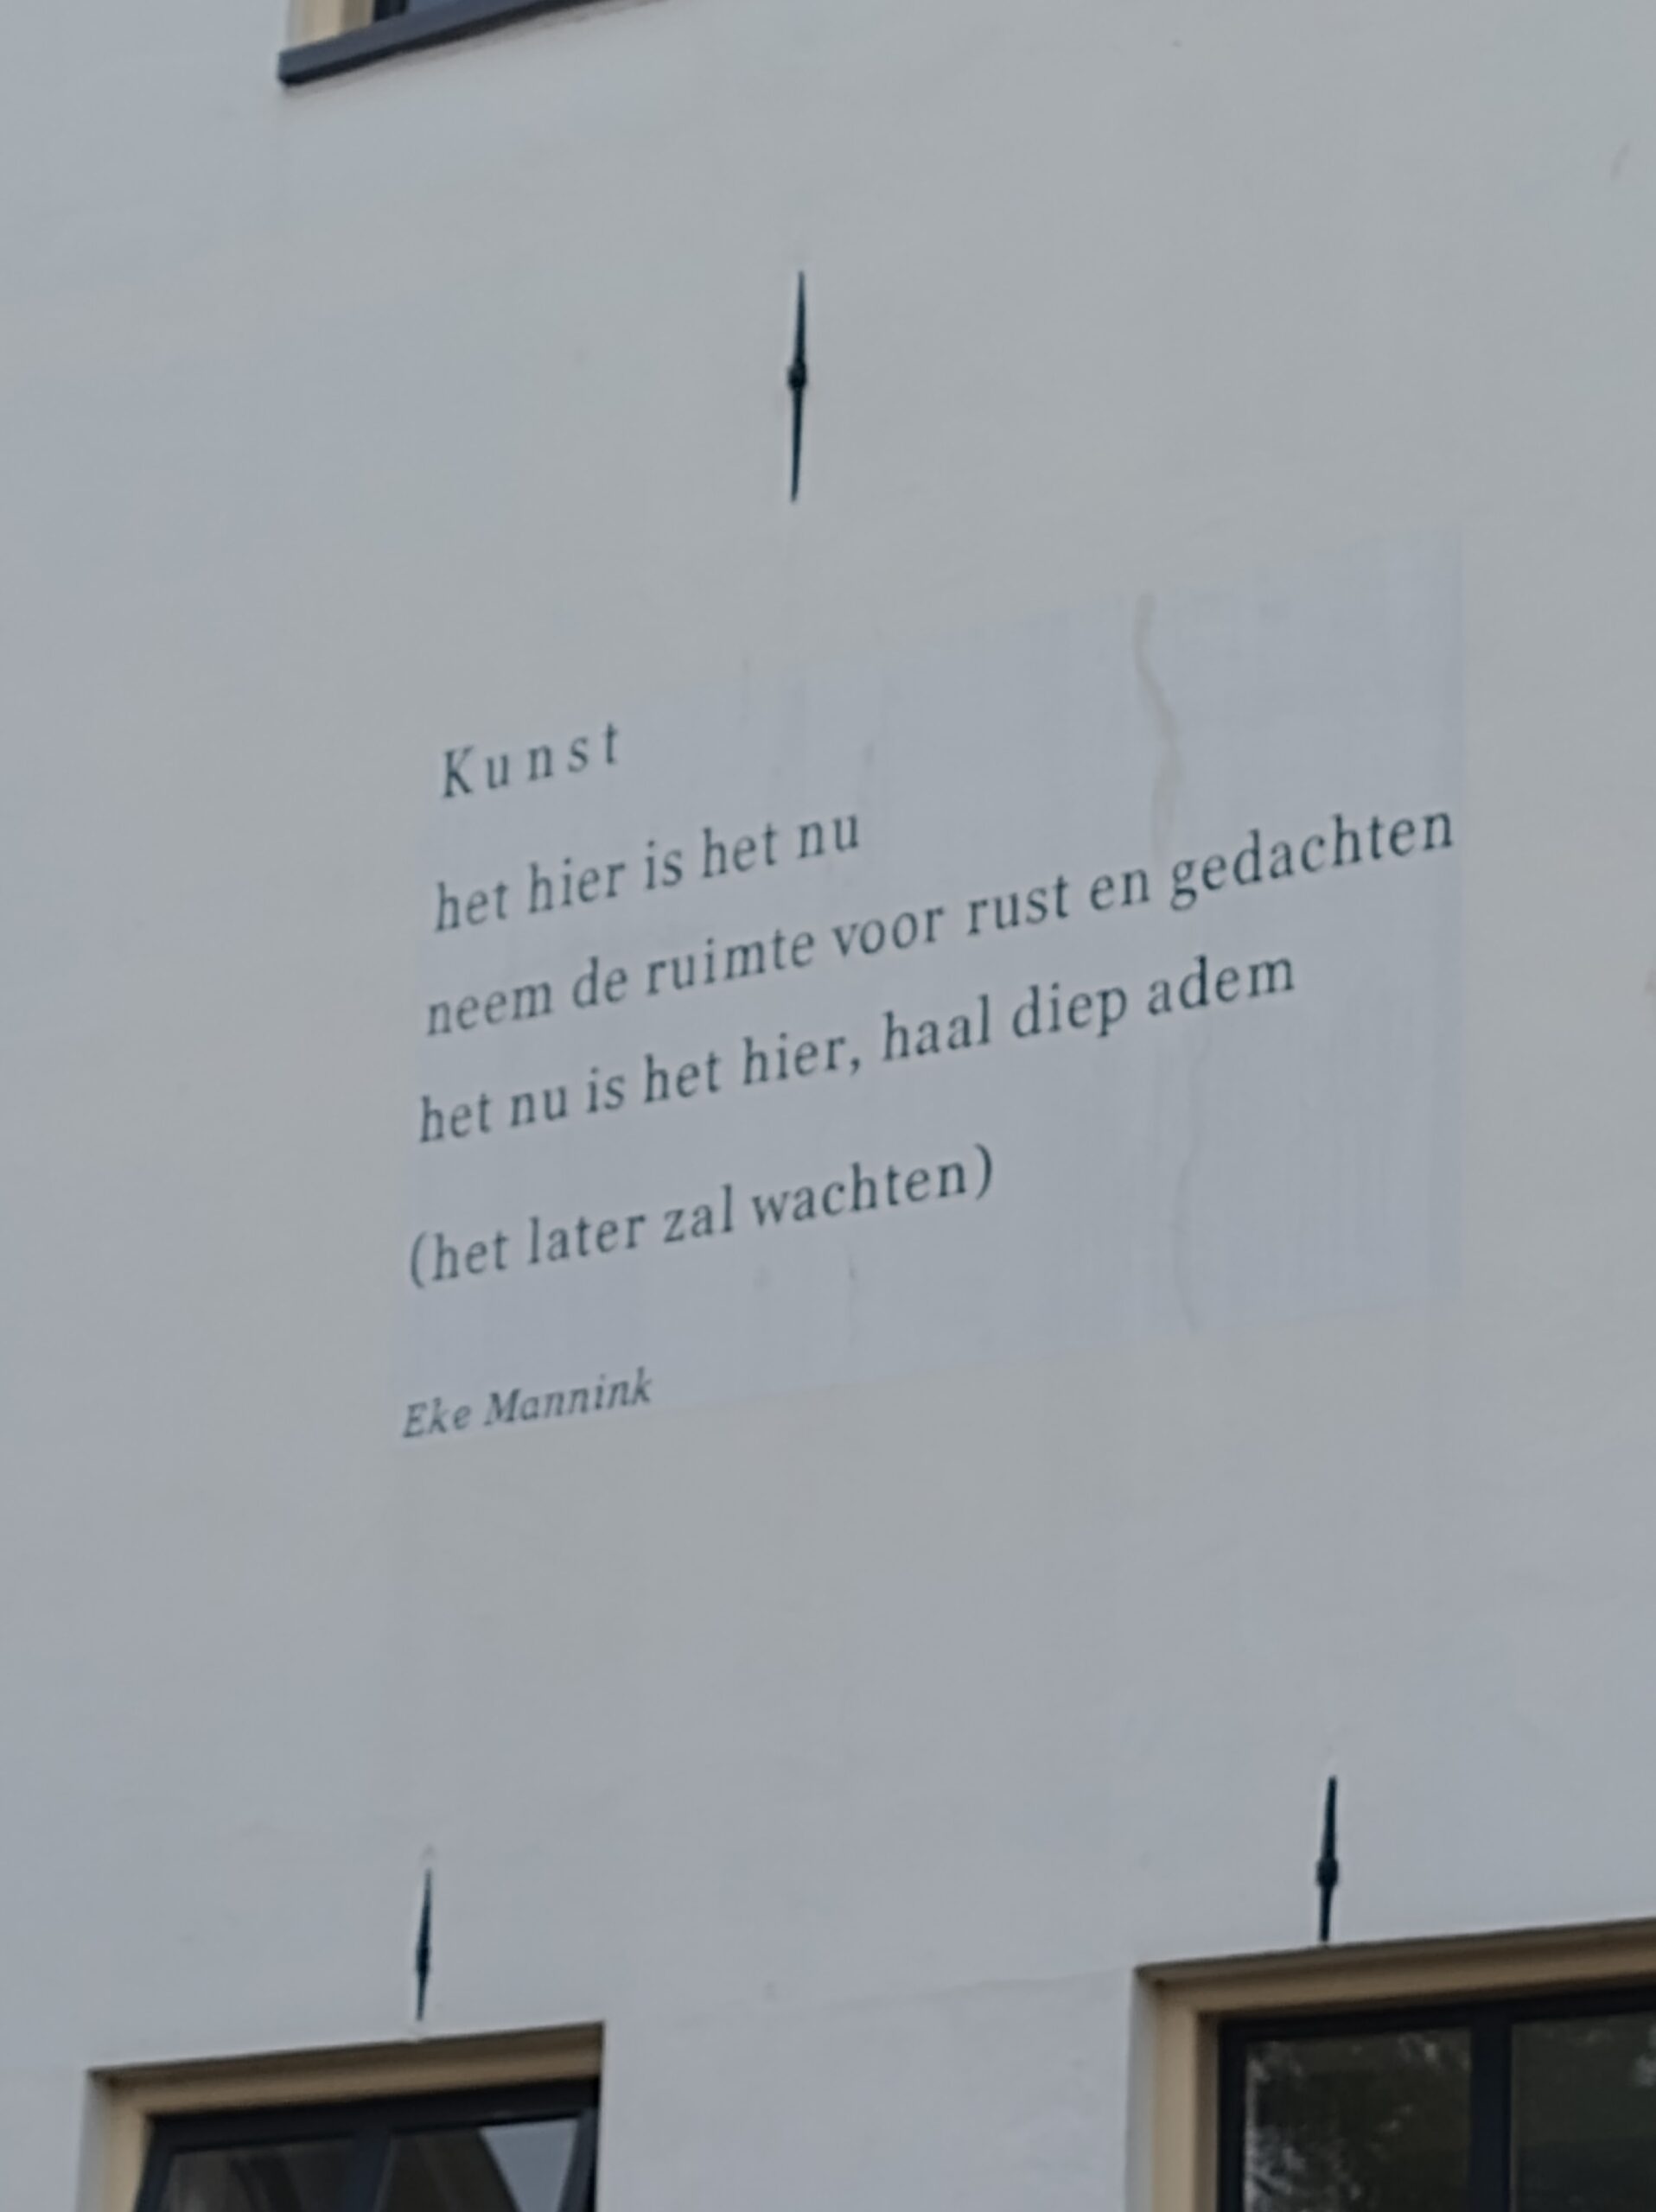 Kunst
het hier is het nu
neem de ruimte voor rust en gedachten
het nu is het hier, haal diep adem
(het later zal wachten)
Eke Mannink